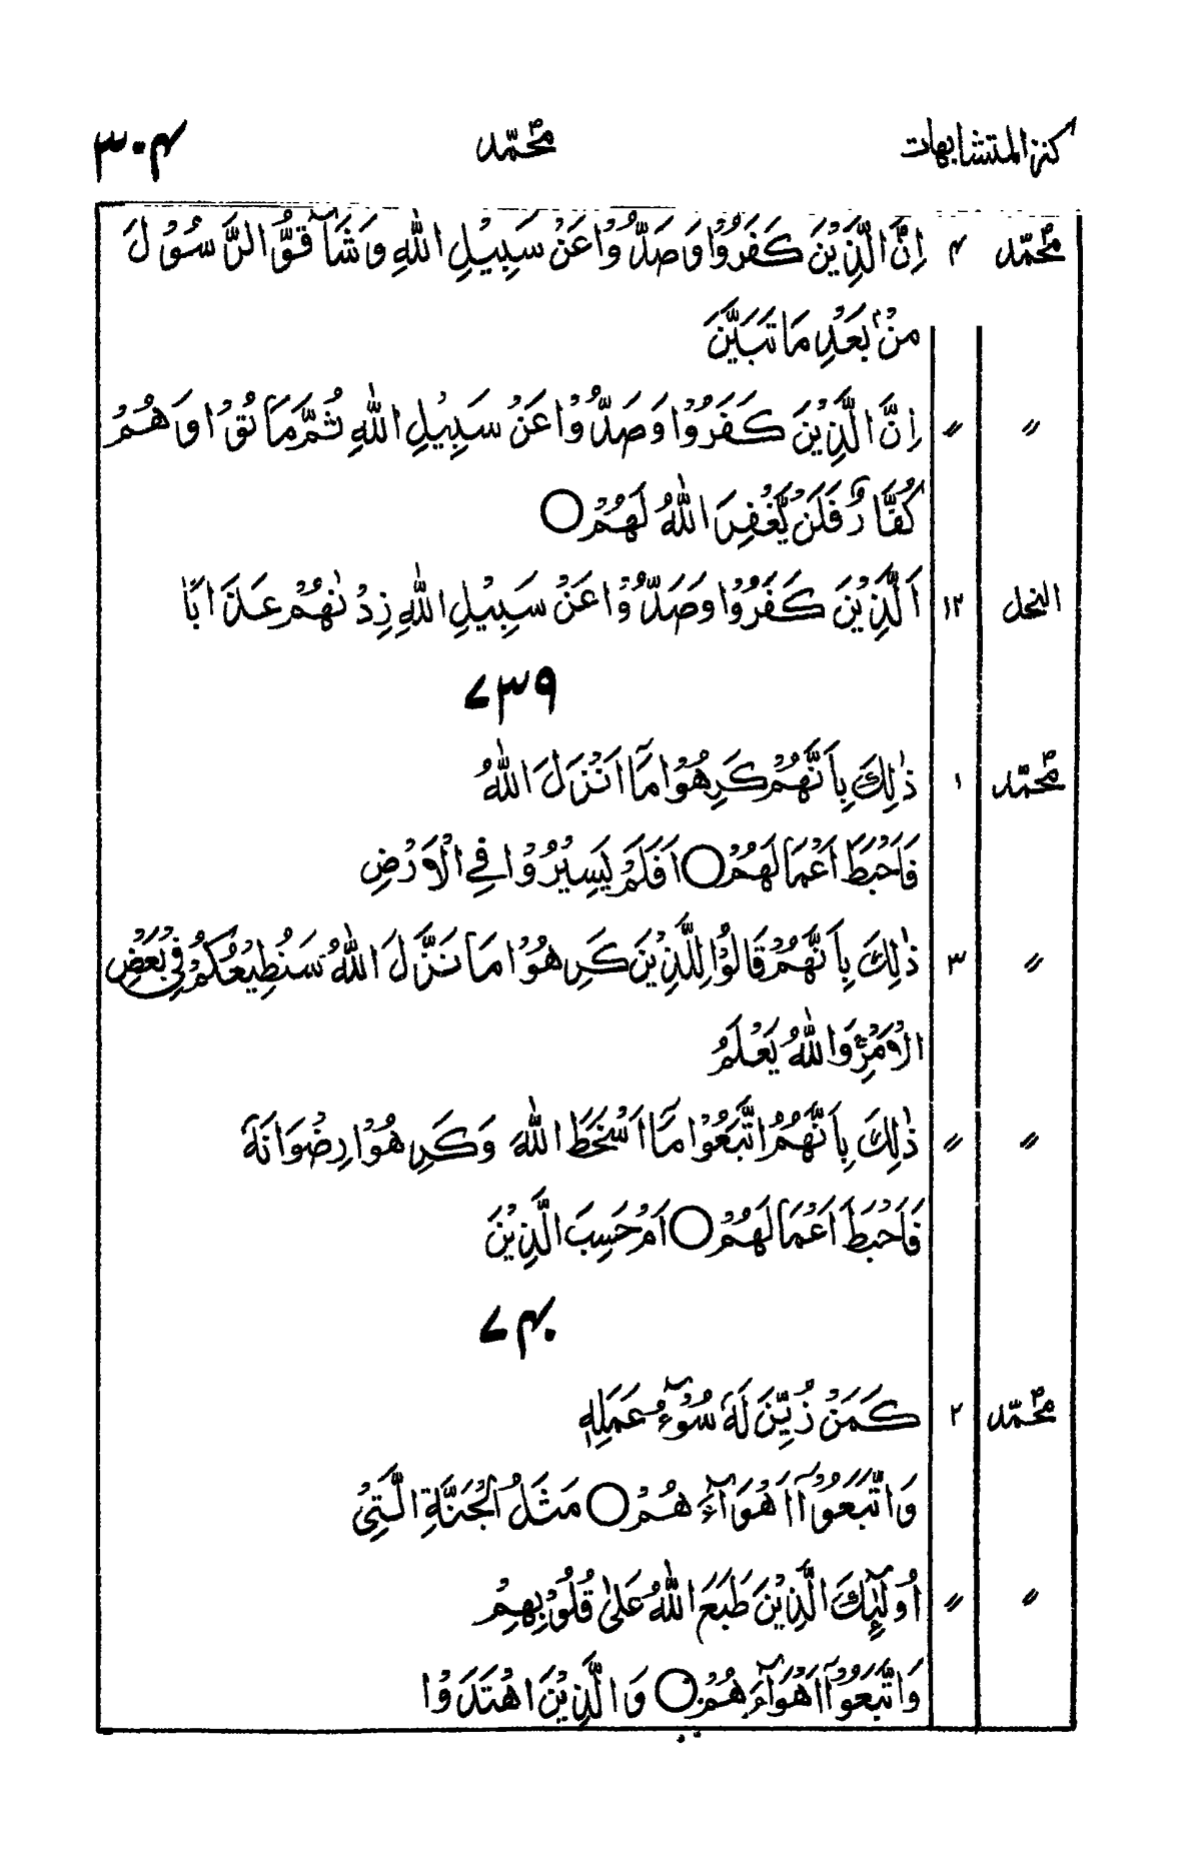 كنز المتشابهات محمّد ۳۰۴
محمّد ۴ اِنَّ الَّذِيْنَ كَفَرُوْا وَصَدُّوْا عَنْ سَبِيْلِ اللّٰهِ وَشَآقُّوا الرَّسُوْلَ
مِنْۢ بَعْدِ مَا تَبَيَّنَ
〃 〃 اِنَّ الَّذِيْنَ كَفَرُوْا وَصَدُّوْا عَنْ سَبِيْلِ اللّٰهِ ثُمَّ مَا تُوْا وَهُمْ
كُفَّارٌ فَلَنْ يَّغْفِرَ اللّٰهُ لَهُمْ ○
النحل ۱۲ اَلَّذِيْنَ كَفَرُوْا وَصَدُّوْا عَنْ سَبِيْلِ اللّٰهِ زِدْنٰهُمْ عَذَابًا
۷۳۹
محمّد ۱ ذٰلِكَ بِاَنَّهُمْ كَرِهُوْا مَآ اَنْزَلَ اللّٰهُ
فَاَحْبَطَ اَعْمَالَهُمْ ○ اَفَلَمْ يَسِيْرُوْا فِي الْاَرْضِ
〃 ۳ ذٰلِكَ بِاَنَّهُمْ قَالُوْا لِلَّذِيْنَ كَرِهُوْا مَا نَزَّلَ اللّٰهُ سَنُطِيْعُكُمْ فِيْ بَعْضِ
الْاَمْرِ ۚ وَاللّٰهُ يَعْلَمُ
〃 〃 ذٰلِكَ بِاَنَّهُمُ اتَّبَعُوْا مَآ اَسْخَطَ اللّٰهَ وَكَرِهُوْا رِضْوَانَهٗ
فَاَحْبَطَ اَعْمَالَهُمْ ○ اَمْ حَسِبَ الَّذِيْنَ
۷۴۰
محمّد ۲ كَمَنْ زُيِّنَ لَهٗ سُوْٓءُ عَمَلِهٖ
وَاتَّبَعُوْٓا اَهْوَآءَهُمْ ○ مَثَلُ الْجَنَّةِ الَّتِيْ
〃 〃 اُولٰٓئِكَ الَّذِيْنَ طَبَعَ اللّٰهُ عَلٰى قُلُوْبِهِمْ
وَاتَّبَعُوْٓا اَهْوَآءَهُمْ ○ وَالَّذِيْنَ اهْتَدَوْا